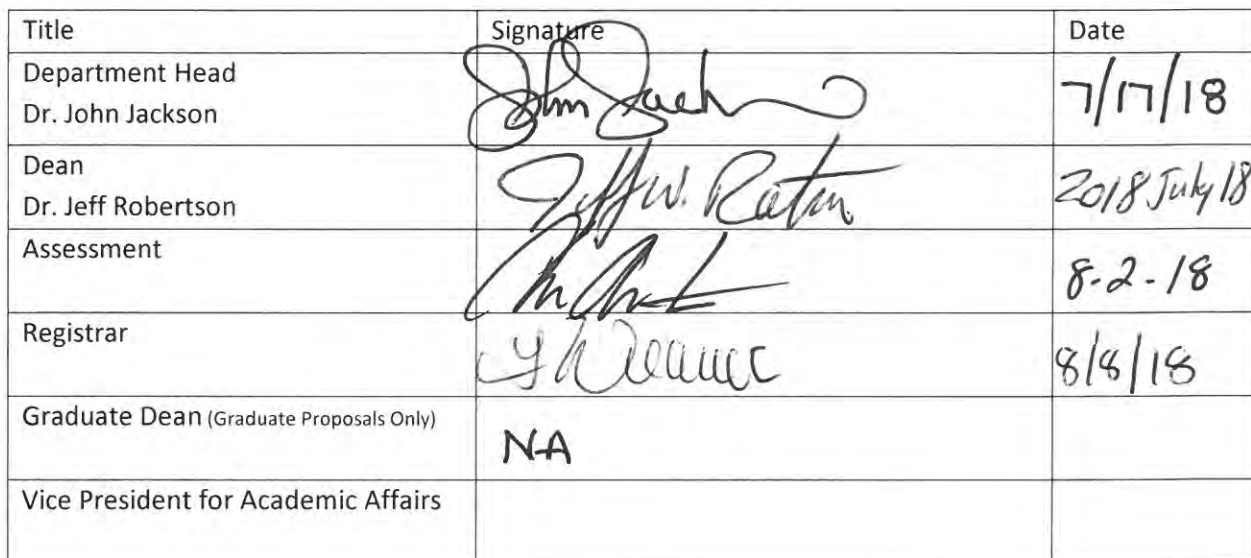 Title Signature Date
Department Head
Dr. John Jackson John Jack 7/17/18
Dean
Dr. Jeff Robertson Jeff W. 2018 July 18
Assessment 8-2-18
Registrar 8/8/18
Graduate Dean (Graduate Proposals Only) NA
Vice President for Academic Affairs